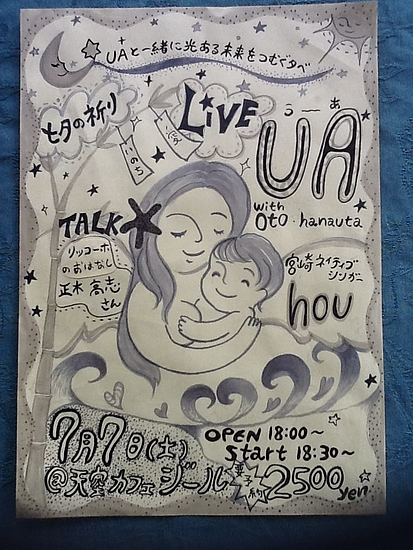 UAと一緒に光ある未来をつむぐ夕べ
七夕の祈り
LIVE
うーあ
UA
with
Oto・hanauta
いのち
TALK
リッコーホ
のおはなし
正木 高志
さん
宮崎ネイティブ
シンガー
hou
7月7日(土)
OPEN 18:00〜
Start 18:30〜
@天空カフェ ジール
要予約
2500
yen